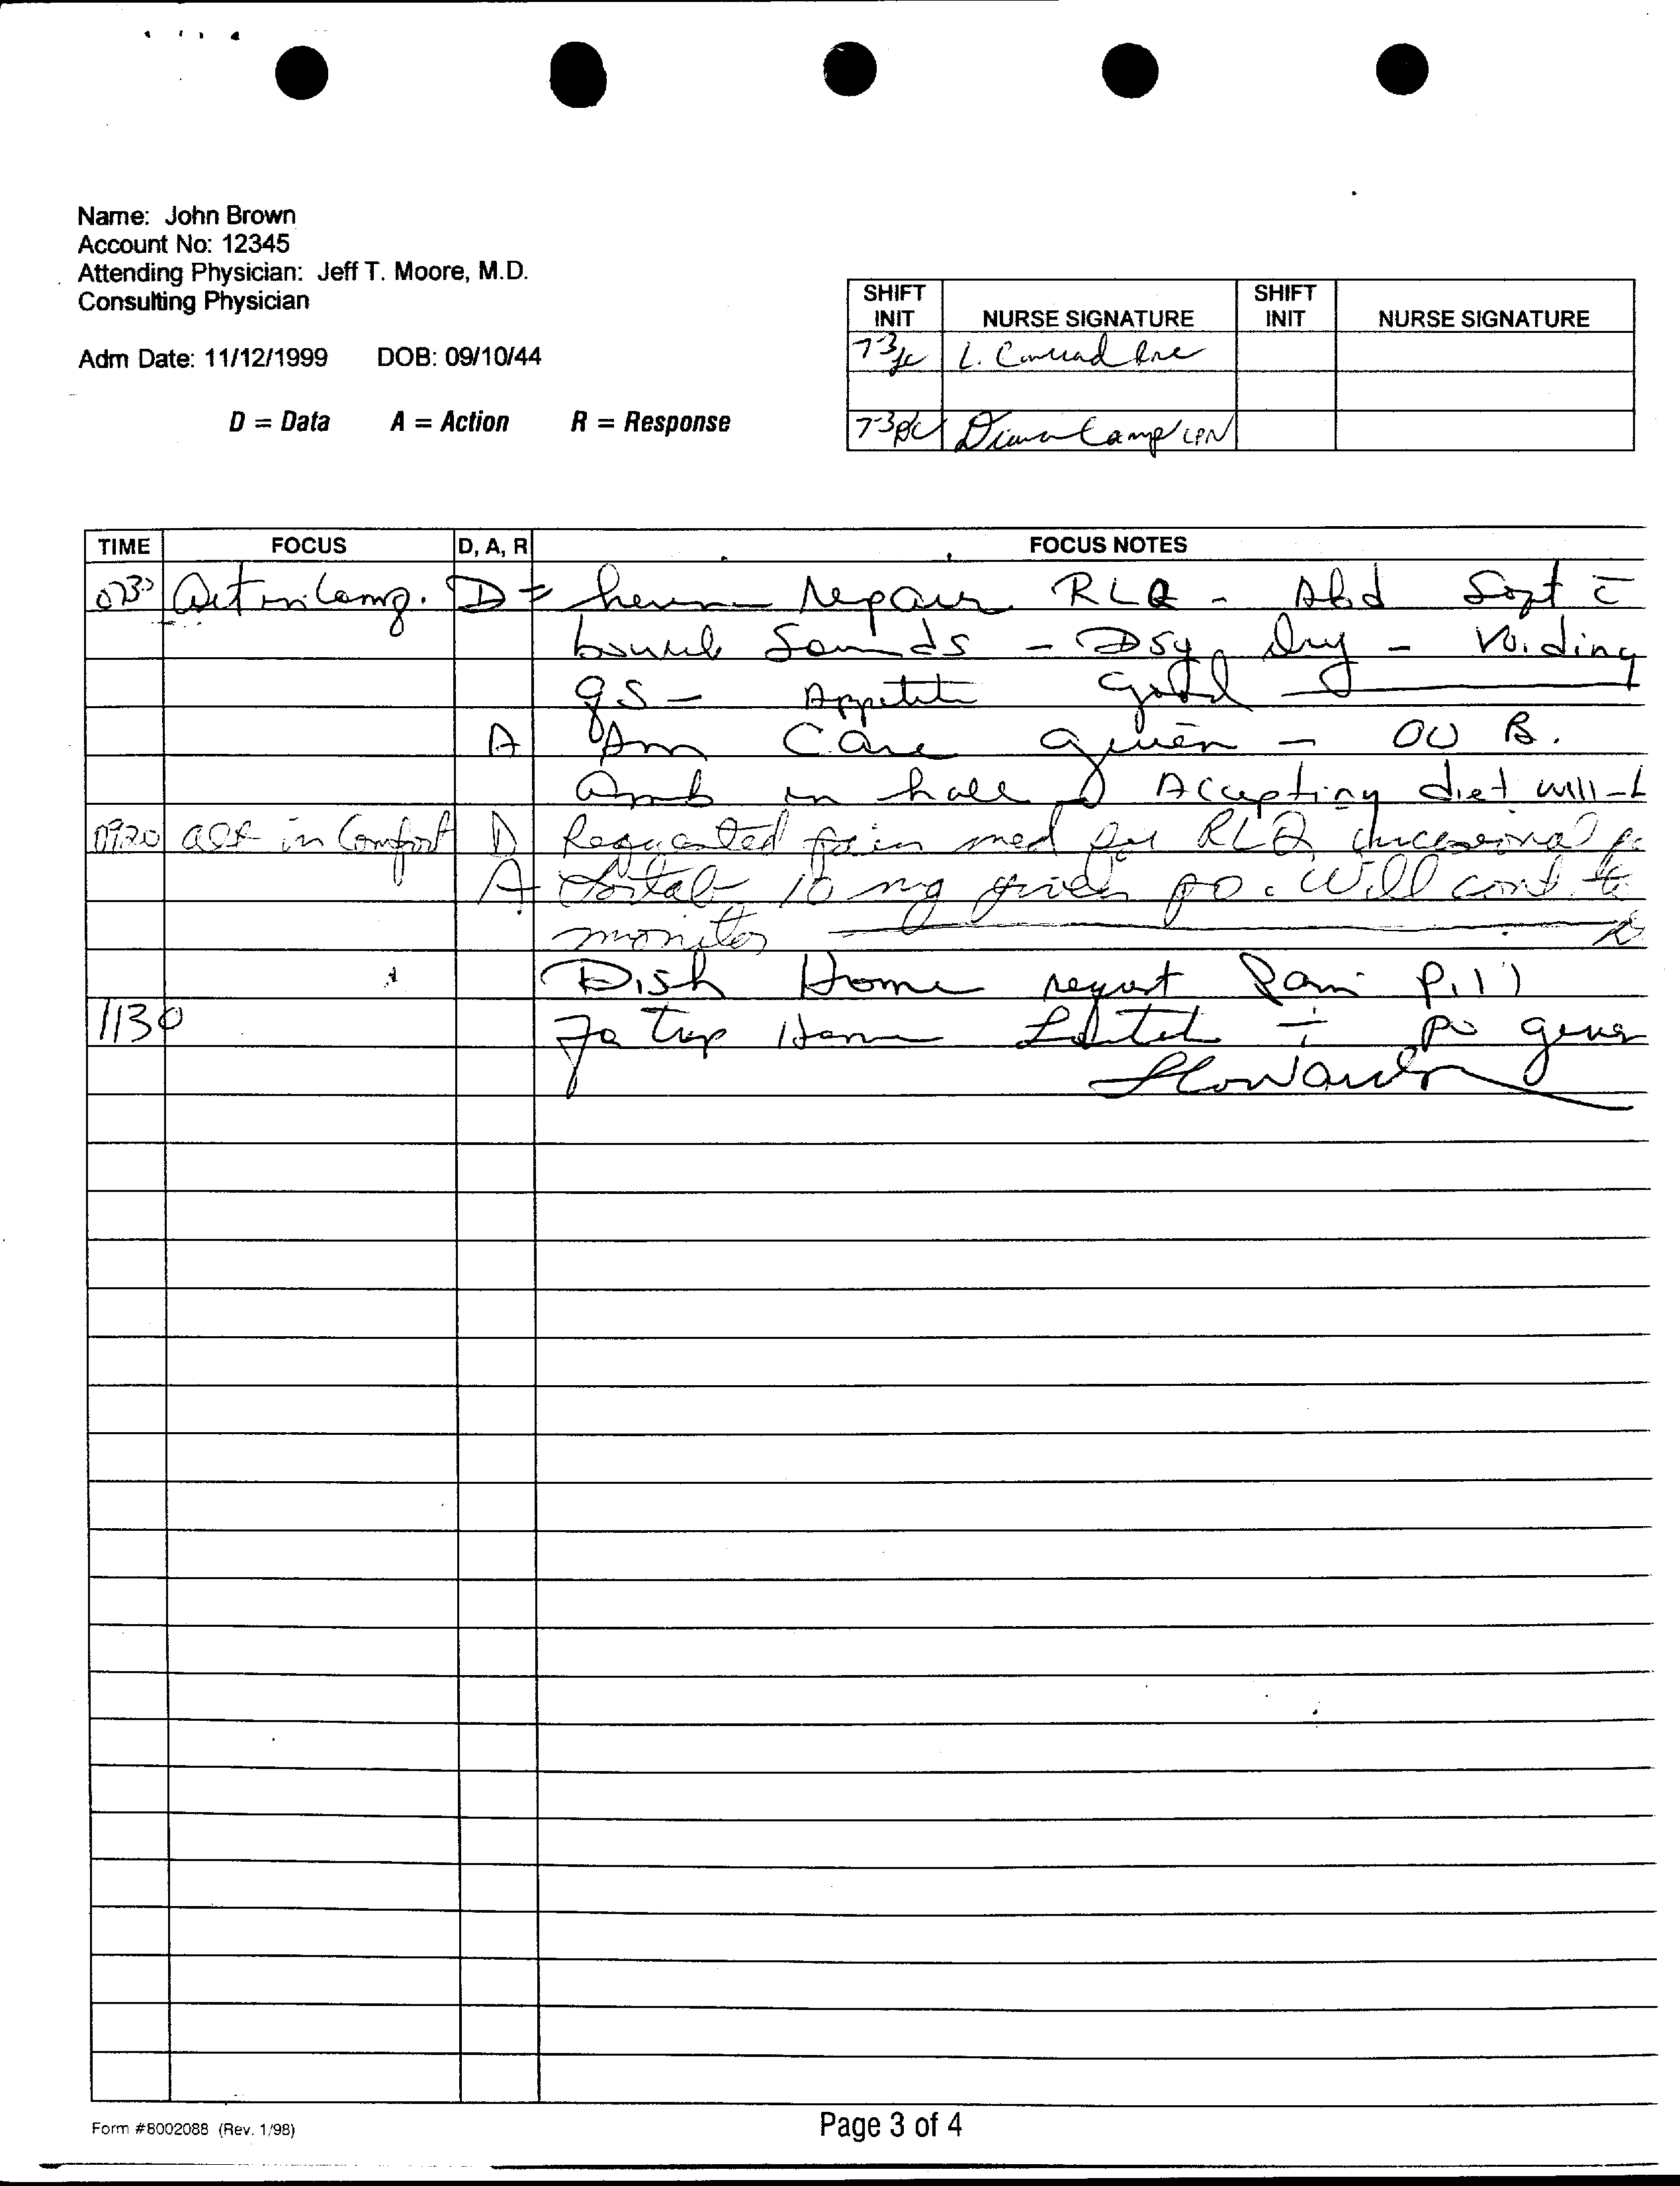 Name: John Brown
Account No: 12345
Attending Physician: Jeff T. Moore, M.D.
Consulting Physician
Adm Date: 11/12/1999 DOB: 09/10/44
D = Data A = Action R = Response
SHIFT INIT NURSE SIGNATURE SHIFT INIT NURSE SIGNATURE
7-3 L. Conrad
7-3 DC Diana Camp LPN
TIME FOCUS D, A, R FOCUS NOTES
0730 D = hernia repair RLQ - Abd Soft c̄
bowel Sounds - Dsg dry - Voiding
qs - Appetite good
A Am Care given - OOB.
Amb in hall Accepting diet well
0920 alt in Comfort D Requested pain med for RLQ incisional
A Lortab 10 mg given po. Will cont to
monitor
Disch Home request Pain pill
1130 for trip Home Lortab po given